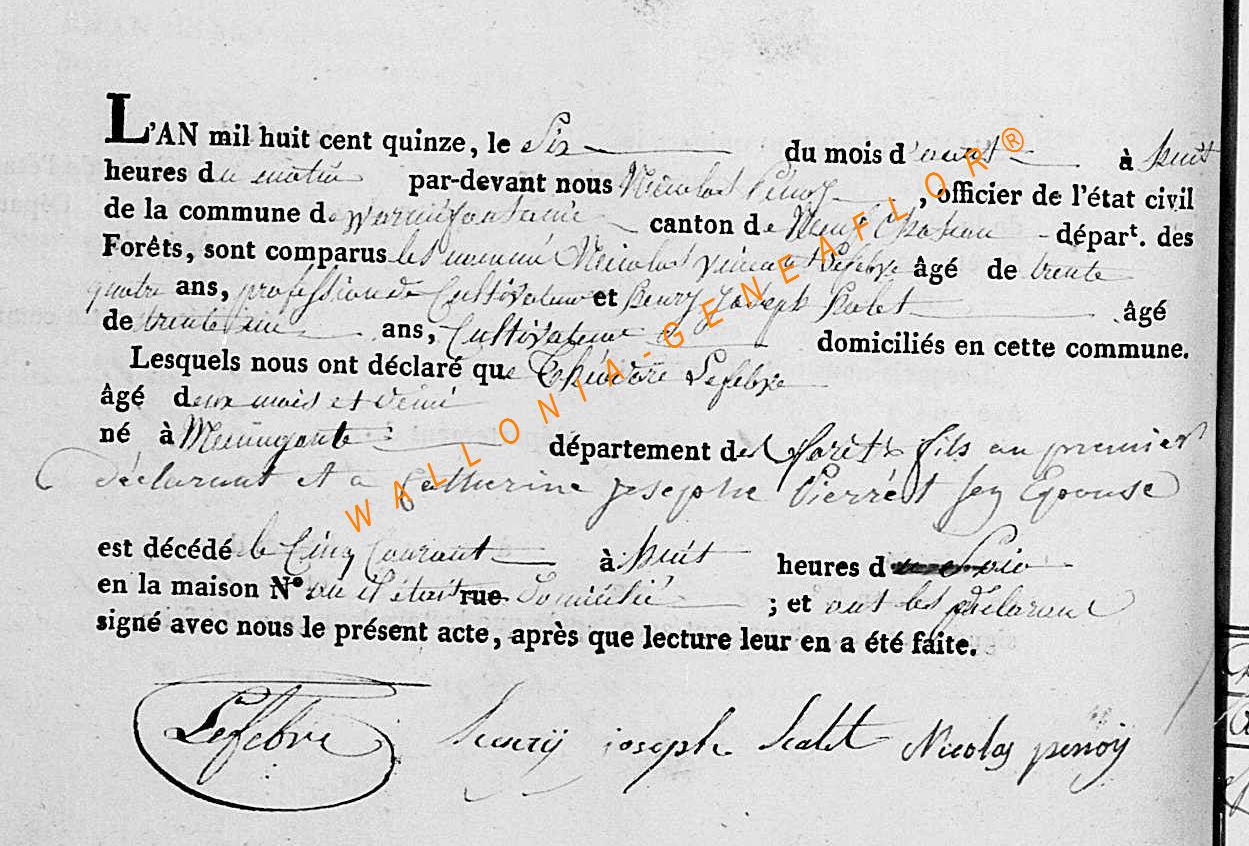 L'AN mil huit cent quinze, le Six du mois d'août à huit
heures du matin par-devant nous Nicolas penoy, officier de l'état civil
de la commune de Warmifontaine canton de Neufchateau départ. des
Forêts, sont comparus les nommé Nicolas Lefebre âgé de trente
quatre ans, profession de Cultivateur et henry Joseph halet âgé
de trente ans, Cultivateur domiciliés en cette commune.
Lesquels nous ont déclaré que Théodore Lefebre
âgé deux mois et demi
né à département des forêts fils au premier
déclarant et a Catherine Josephe Pierrét son Epouse
est décédé le Cinq Courant à huit heures du Soir
en la maison N° ou il était rue Domicilié ; et ont les déclarant
signé avec nous le présent acte, après que lecture leur en a été faite.
Lefebvre henry joseph halet Nicolas penoy
WALLONIA-GENEAFLOR®